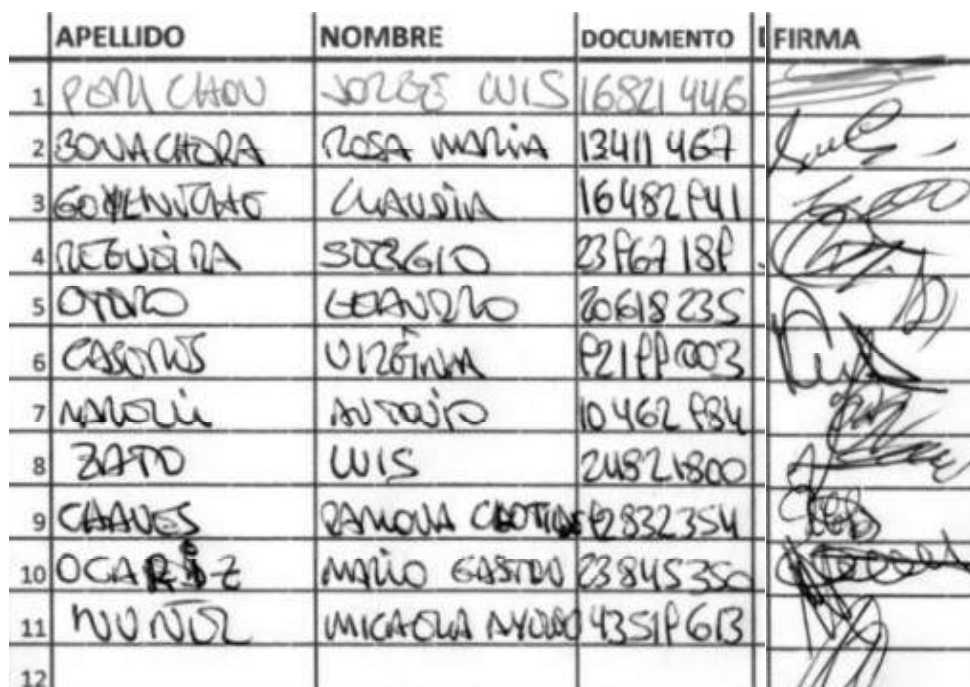 APELLIDO NOMBRE DOCUMENTO FIRMA
1 JORGE LUIS 16821 446
2 BONACHORA ROSA MARIA 13411 467
3 CLAUDIA 16482941
4 REGUEIRA SERGIO 23967 189
5 OTERO LEANDRO 20618 235
6 VIRGINIA
7 ANTONIO 10462 984
8 ZATO LUIS 24821800
9 CHAVES RAMONA CLOTILDE 12832354
10 OCARIZ MARIO GASTON 23845350
11 NUÑEZ MICAELA 43519613
12